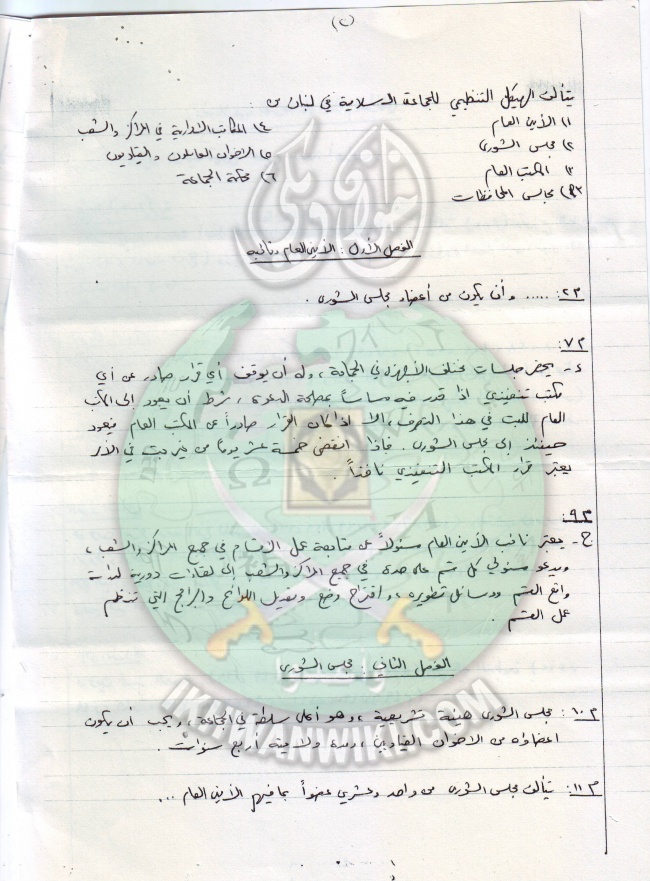 (٢)
يتألف الهيكل التنظيمي للجماعة الاسلامية في لبنان من :
١) الأمين العام
٢) مجلس الشورى
٣) المكتب العام
مجالس المحافظات
٤) المكاتب الادارية في المراكز والشعب
٥) الاخوان العاملون والقياديون
٦) محكمة الجماعة
الفصل الأول : الأمين العام ونائبه
م٢ : ..... وأن يكون من أعضاء مجلس الشورى .
م٧ :
٤ - يحضر جلسات مختلف الأجهزة في الجماعة ، وله أن يوقف أي قرار صادر عن أي
مكتب تنفيذي اذا قدر فيه مساساً بمصلحة الدعوة ، شرط أن يعود الى المكتب
العام للبت في هذا التصرف ، الا اذا كان القرار صادراً عن المكتب العام فيعود
حينئذ إلى مجلس الشورى . فاذا انقضى خمسة عشر يوماً من غير بت في الأمر
يعتبر قرار المكتب التنفيذي نافذاً .
م٩ :
ج - يعتبر نائب الأمين العام مسئولاً عن متابعة عمل الاقسام في جميع المراكز والشعب ،
ويدعو مسئولي كل قسم على حدة في جميع المراكز والشعب إلى لقاءات دورية لدراسة
واقع القسم ووسائل تطويره ، واقتراح وضع وتعديل اللوائح والبرامج التي تنظم
عمل القسم .
الفصل الثاني : مجلس الشورى
م١٠ : مجلس الشورى هيئة تشريعية ، وهو أعلى سلطة في الجماعة ، ويجب أن يكون
اعضاؤه من الاخوان القياديين ، ومدة ولايته أربع سنوات .
م١١ : يتألف مجلس الشورى من واحد وعشرين عضواً بما فيهم الأمين العام ...
إخوان ويكي
وأعدوا
IKHWANWIKI.COM